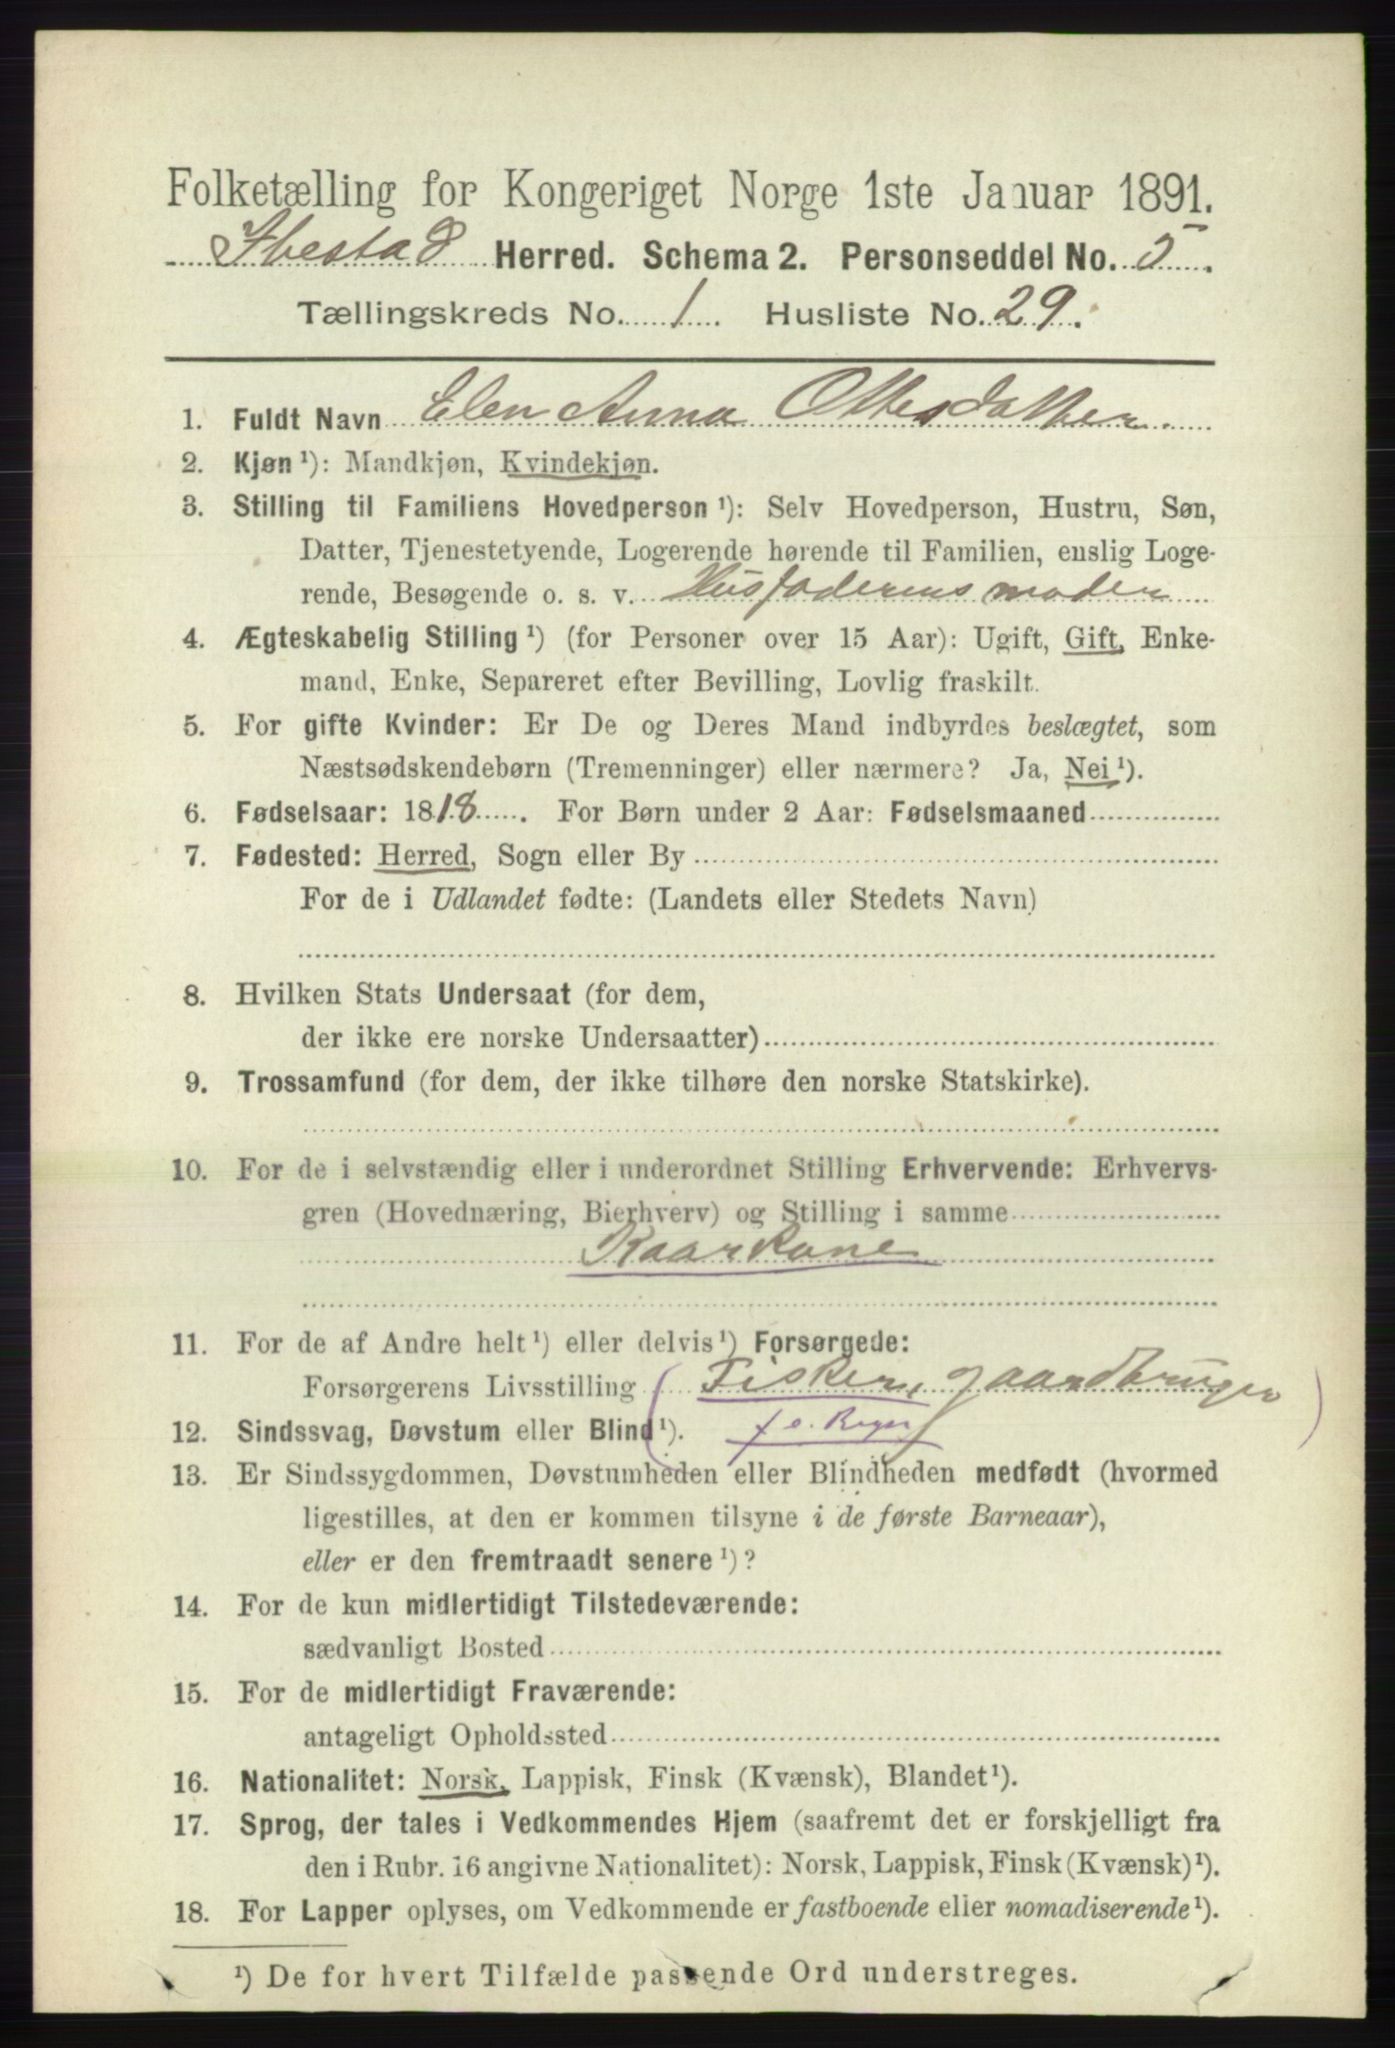 Folketælling for Kongeriget Norge 1ste Januar 1891.
Ibestad Herred. Schema 2. Personseddel No. 5.
Tællingskreds No. 1. Husliste No. 29.
1. Fuldt Navn Elen Anna Ottesdatter
2. Kjøn ¹): Mandkjøn, Kvindekjøn.
3. Stilling til Familiens Hovedperson ¹): Selv Hovedperson, Hustru, Søn,
Datter, Tjenestetyende, Logerende hørende til Familien, enslig Loge-
rende, Besøgende o. s. v. Husfaderens moder
4. Ægteskabelig Stilling ¹) (for Personer over 15 Aar): Ugift, Gift, Enke-
mand, Enke, Separeret efter Bevilling, Lovlig fraskilt.
5. For gifte Kvinder: Er De og Deres Mand indbyrdes beslægtet, som
Næstsødskendebørn (Tremenninger) eller nærmere? Ja, Nei ¹).
6. Fødselsaar: 1818. For Børn under 2 Aar: Fødselsmaaned
7. Fødested: Herred, Sogn eller By
For de i Udlandet fødte: (Landets eller Stedets Navn)
8. Hvilken Stats Undersaat (for dem,
der ikke ere norske Undersaatter)
9. Trossamfund (for dem, der ikke tilhøre den norske Statskirke).
10. For de i selvstændig eller i underordnet Stilling Erhvervende: Erhvervs-
gren (Hovednæring, Bierhverv) og Stilling i samme
Kaarkone
11. For de af Andre helt ¹) eller delvis ¹) Forsørgede:
Forsørgerens Livsstilling (Fisker, gaardbruger)
12. Sindssvag, Døvstum eller Blind ¹).
13. Er Sindssygdommen, Døvstumheden eller Blindheden medfødt (hvormed
ligestilles, at den er kommen tilsyne i de første Barneaar),
eller er den fremtraadt senere ¹)?
14. For de kun midlertidigt Tilstedeværende:
sædvanligt Bosted
15. For de midlertidigt Fraværende:
antageligt Opholdssted
16. Nationalitet: Norsk, Lappisk, Finsk (Kvænsk), Blandet ¹).
17. Sprog, der tales i Vedkommendes Hjem (saafremt det er forskjelligt fra
den i Rubr. 16 angivne Nationalitet): Norsk, Lappisk, Finsk (Kvænsk) ¹).
18. For Lapper oplyses, om Vedkommende er fastboende eller nomadiserende ¹).
¹) De for hvert Tilfælde passende Ord understreges.